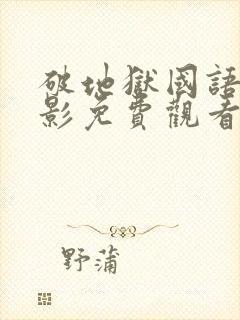 破地獄國語
影免費觀看
野蒲